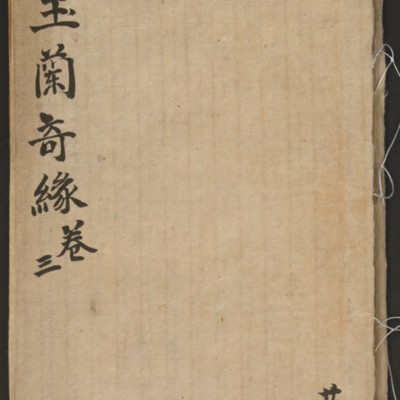 玉蘭奇緣卷三
廿